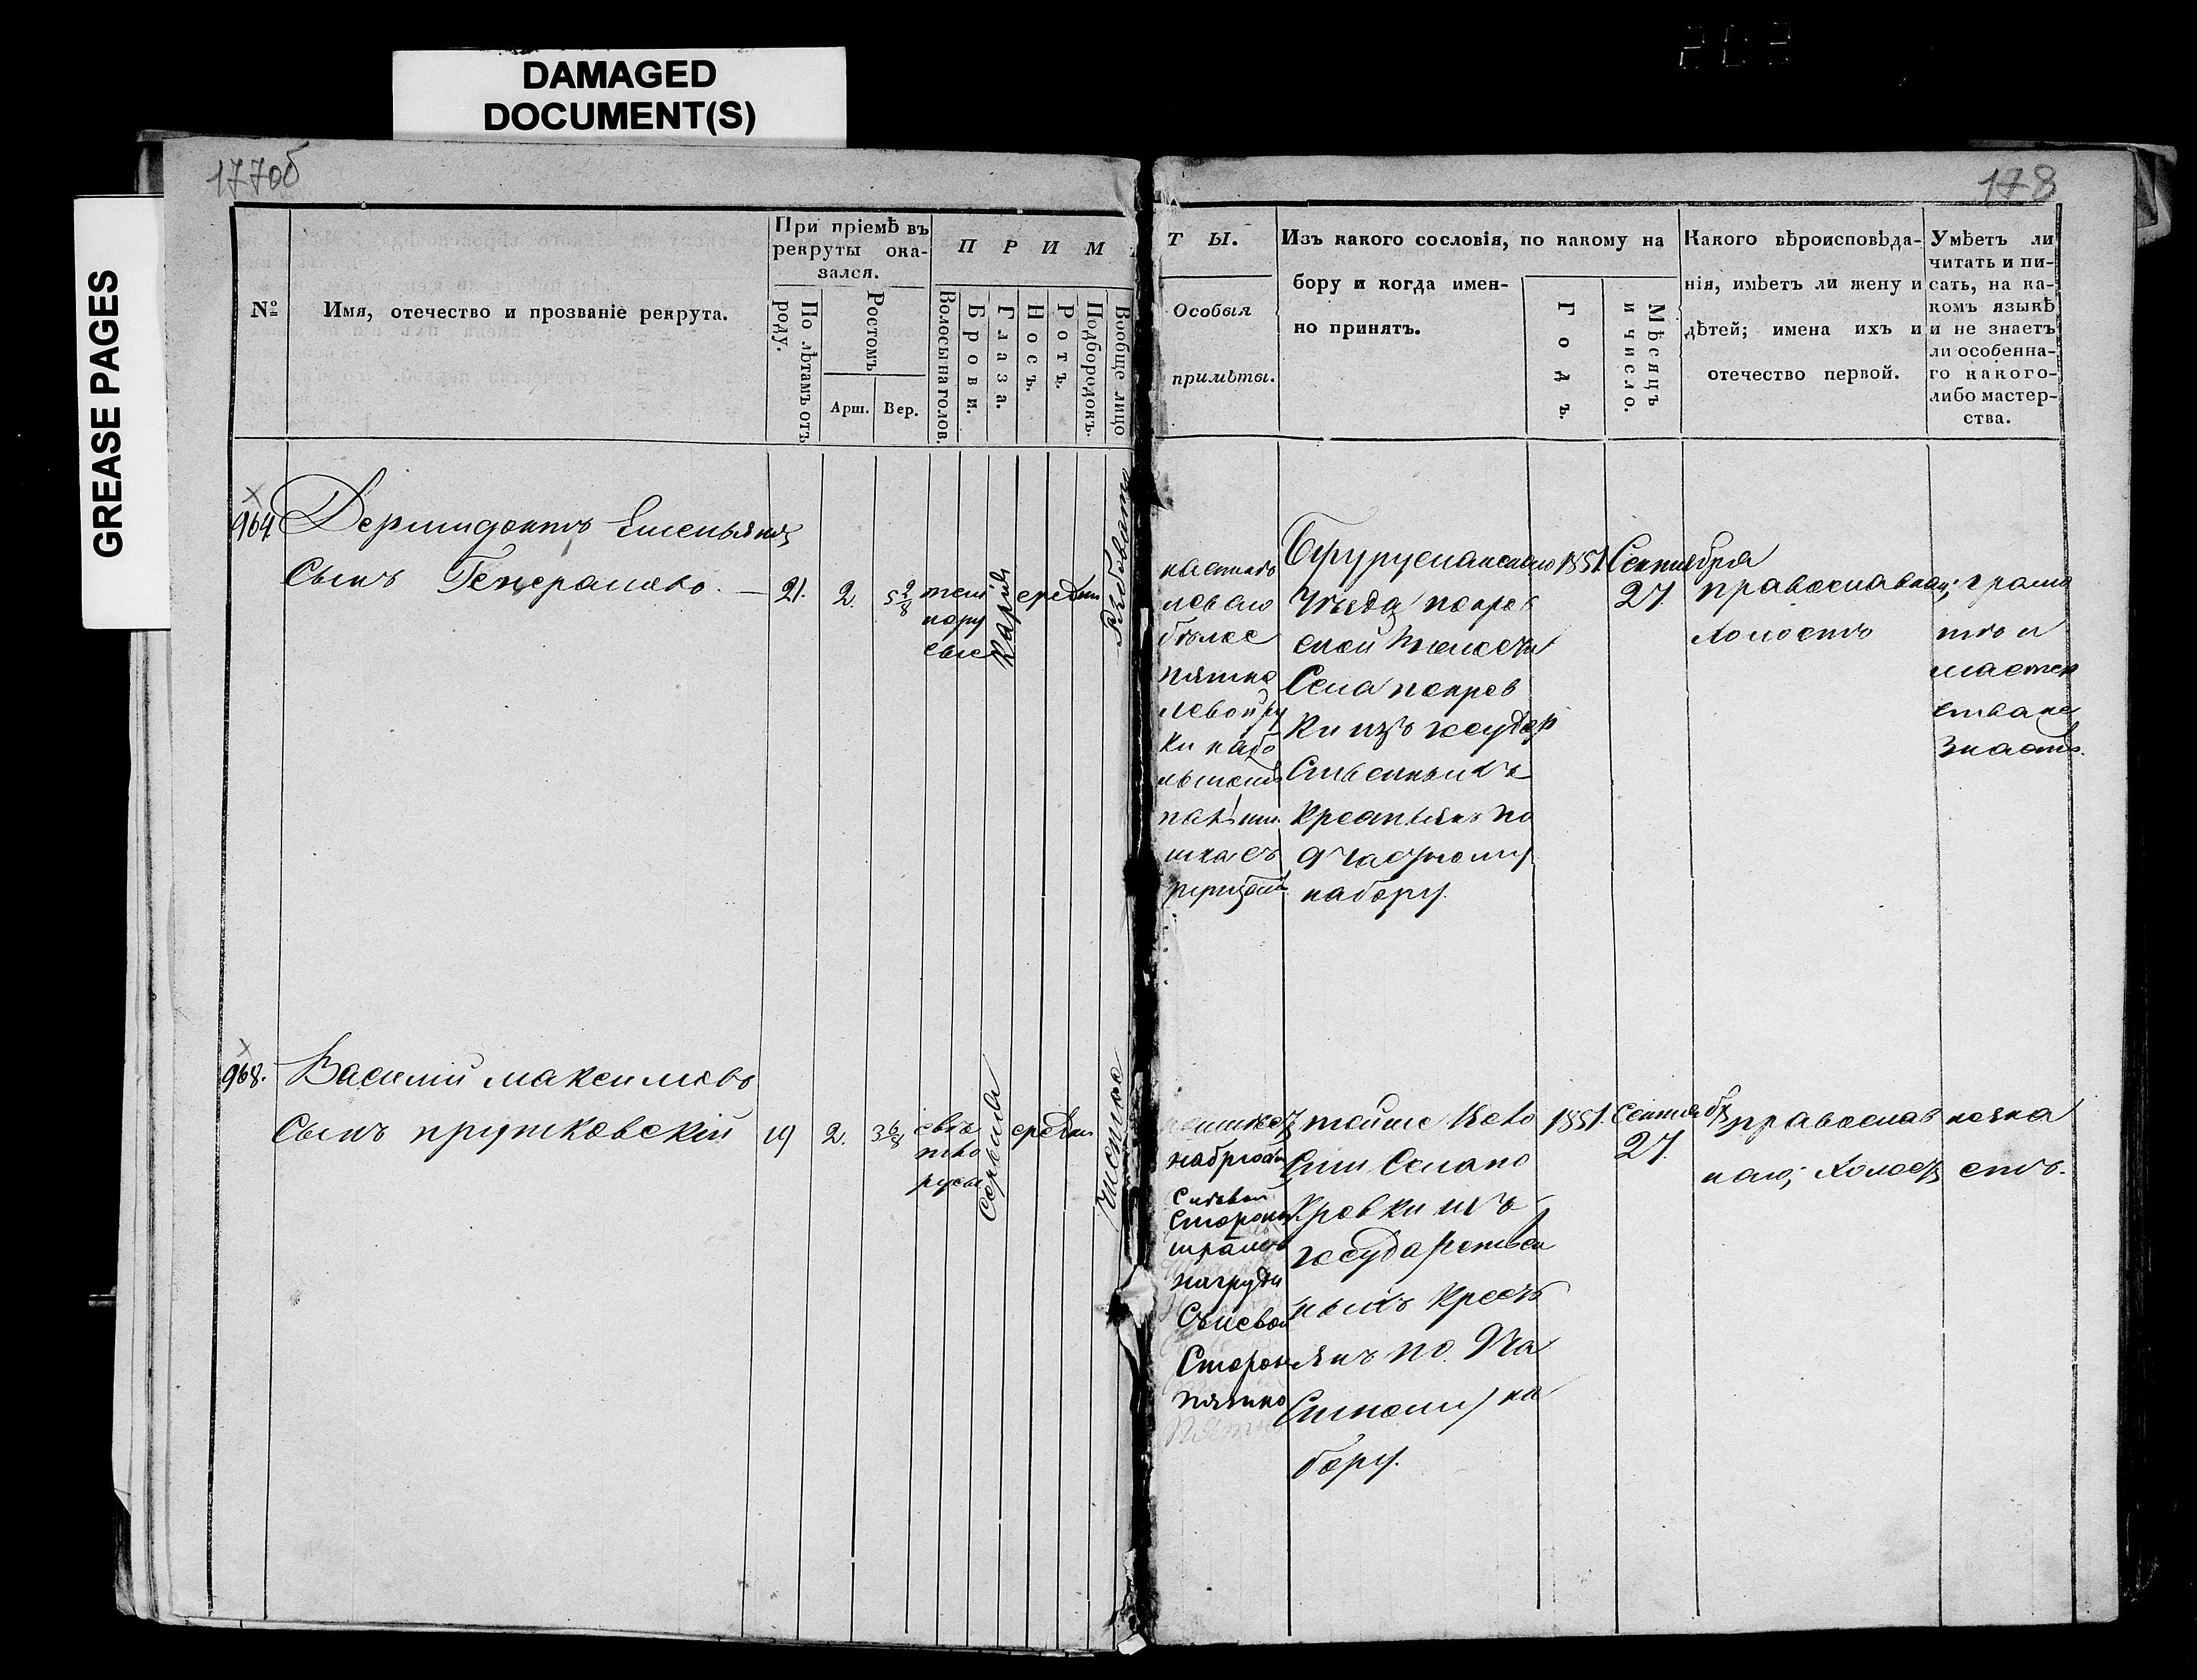 DAMAGED
DOCUMENT(S)
GREASE PAGES
177об
178
№
Имя, отечество и прозваніе рекрута.
При пріемѣ въ
рекруты ока-
зался.
По лѣтамъ отъ
роду.
Ростомъ
Арш.
Вер.
П Р И М
Волосы на голов.
Брови.
Глаза.
Носъ.
Ротъ.
Подбородокъ.
Вообще лицо
Т Ы.
Особыя
примѣты.
Изъ какого сословія, по какому на
бору и когда имен-
но принятъ.
Годъ.
Мѣсяцъ
и число.
Какого вѣроисповѣда-
нія, имѣетъ ли жену и
дѣтей; имена ихъ и
отечество первой.
Умѣетъ ли
читать и пи-
сать, на ка-
комъ языкѣ
и не знаетъ
ли особенна-
го какого-
либо мастер-
ства.
964
Дермидонтъ Емельянъ
Сынъ Генералово.
21.
2.
5 2/8
темно
русы
Карія
средн
Рябовато
левой ру
Сентября
27.
1851
Уѣзда покров
ской волости
Села покров
ки изъ государ
ственныхъ
Крестьянъ по
9 частному
набору.
православнаго,
холостъ
грамо
тѣ и
мастер
ства не
знаетъ.
968.
Василій максимовъ
Сынъ прутковскій
19
2.
3 6/8
свѣт
ло
русы
Серыя
средн
Чистое
Стороны
шрамъ
на груди
Сълевой
Стороны
пятно
Села по
кровки изъ
государствен
ныхъ крест
янъ по 9 ча
стному на
бору.
1851.
Сентяб
27.
православ
наго, холостъ